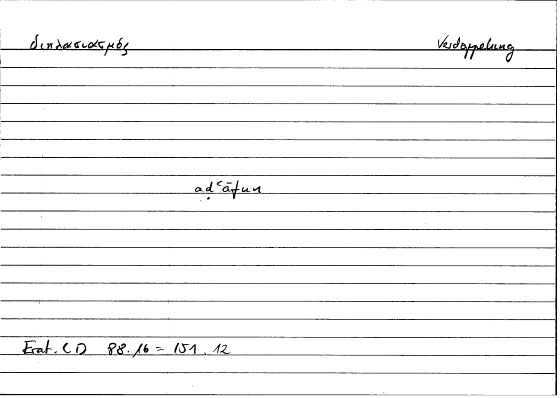 διπλασιασμός Verdoppelung
aḍʿāfun
Erat. CD 88.16 = 151.12